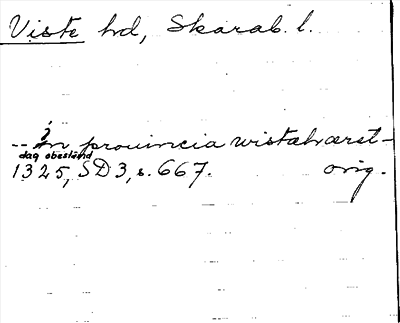 Viste hd, Skarab. l.
-- in provincia wistahærst-
dag obestämd
1325, SD 3, s. 667. orig.